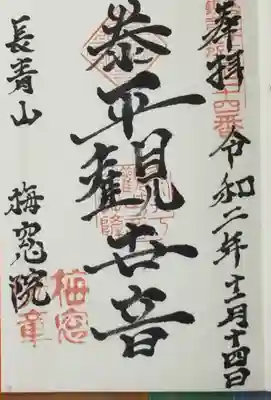 奉拝
令和二年十二月十四日
泰平觀世音
長青山
梅窓院
梅窓
院章